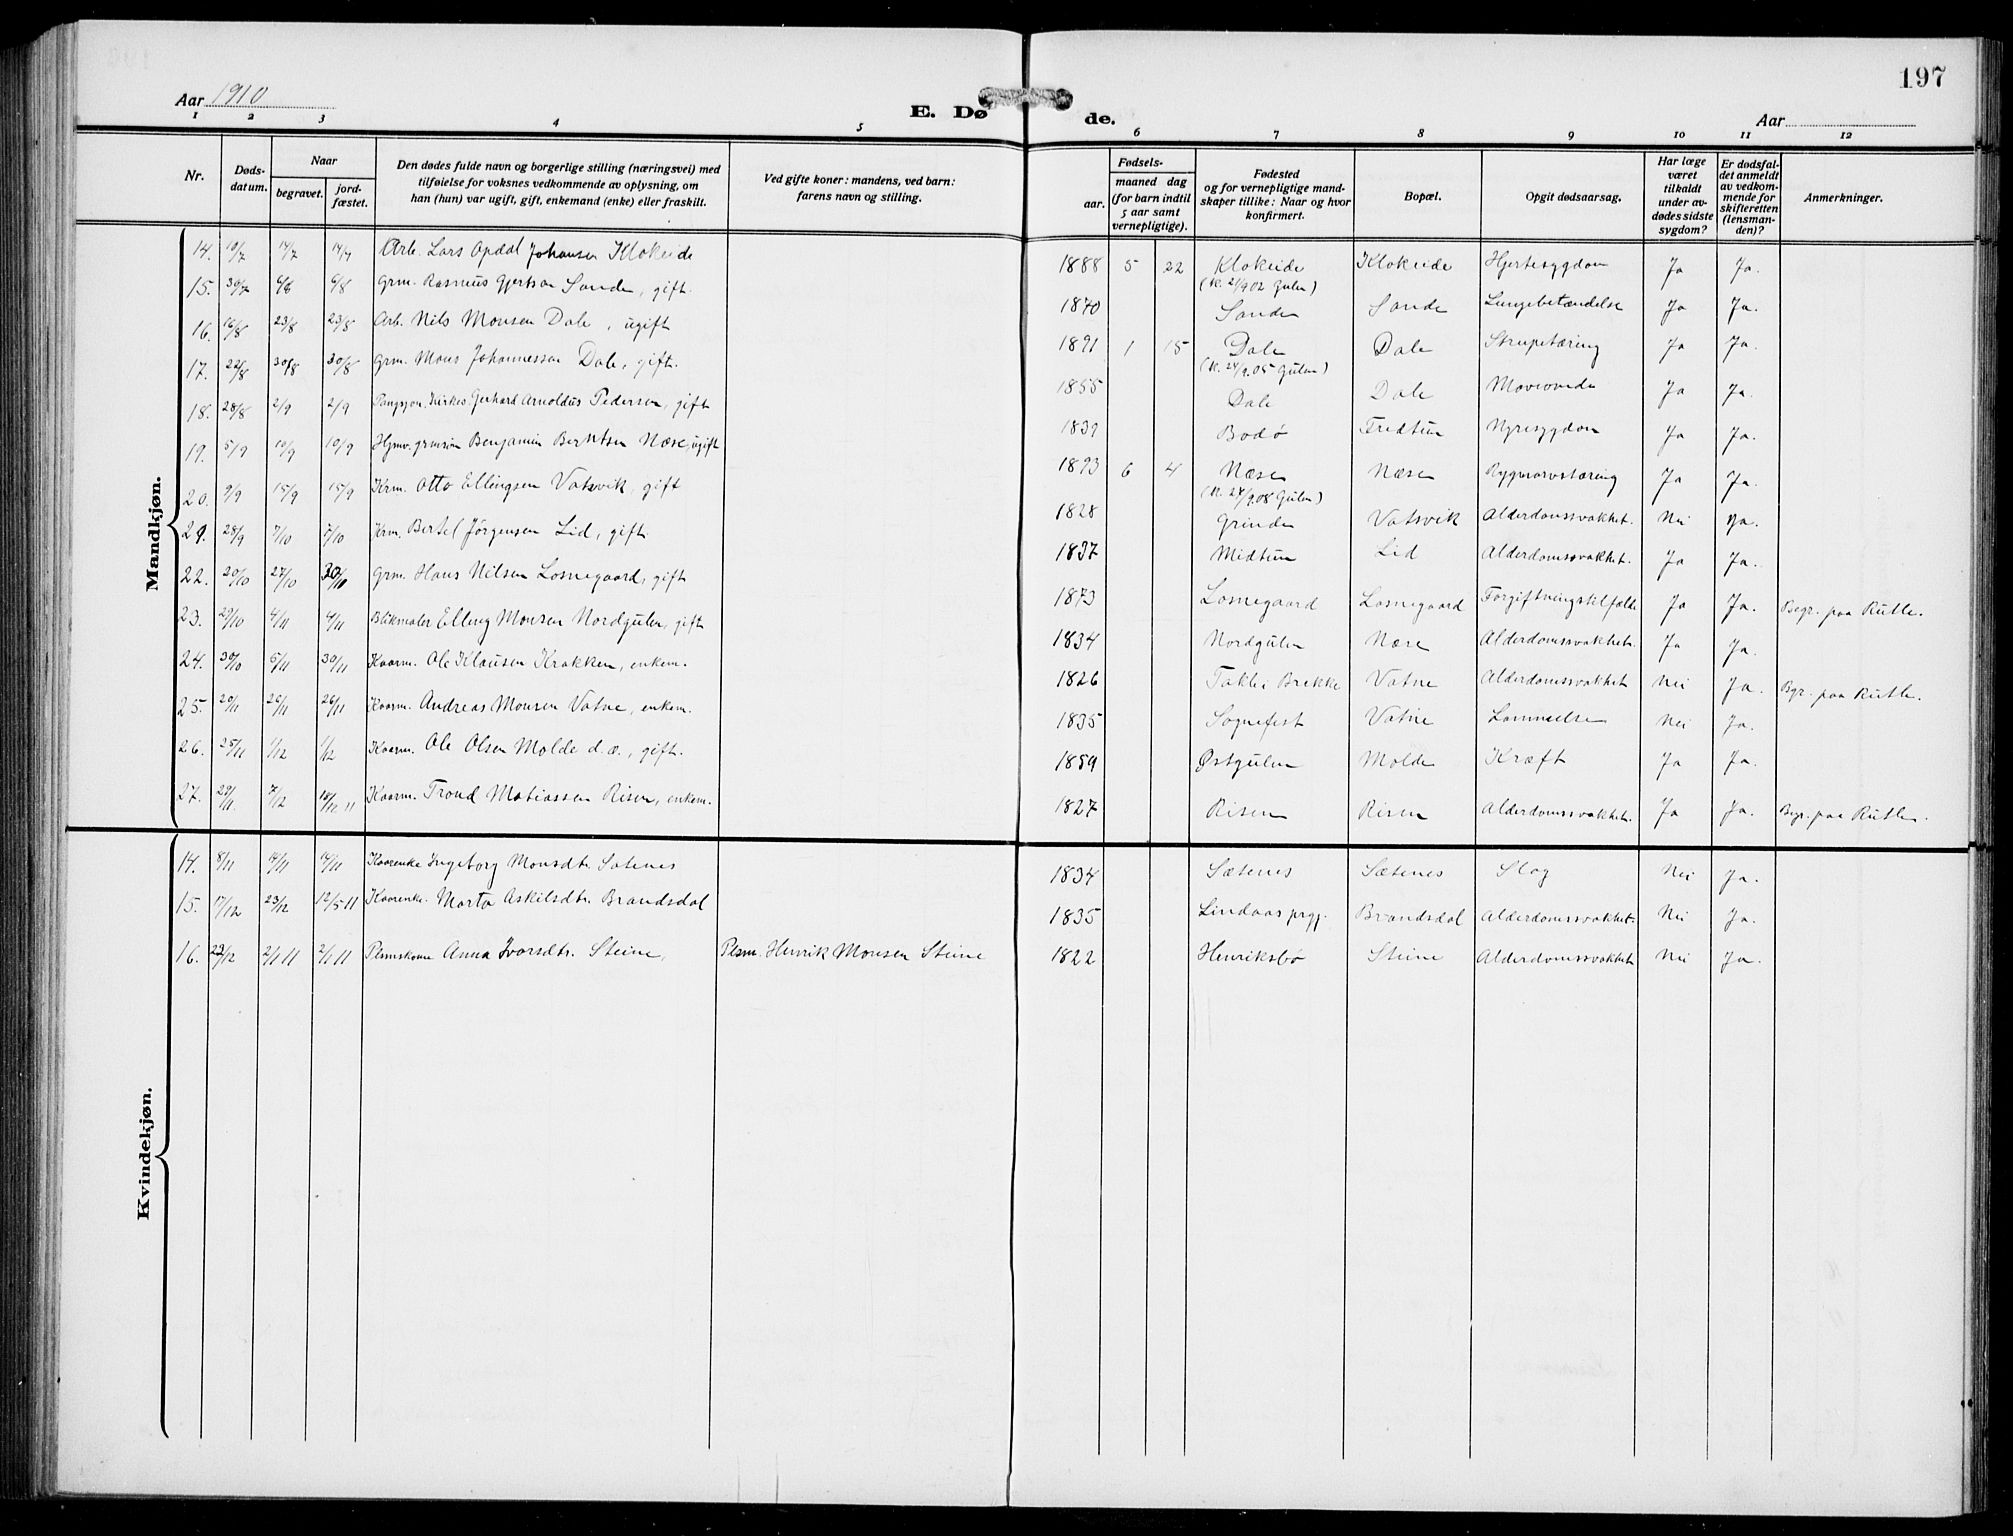 197
Aar 1910
E. Dø de.
Aar
1 2 3 4 5 6 7 8 9 10 11 12
Nr.
Døds-datum.
Naar
begravet.
jord-fæstet.
Den dødes fulde navn og borgerlige stilling (næringsvei) med
tilføielse for voksnes vedkommende av oplysning, om
han (hun) var ugift, gift, enkemand (enke) eller fraskilt.
Ved gifte koner: mandens, ved barn:
farens navn og stilling.
Fødsels-
aar.
maaned dag
(for barn indtil
5 aar samt
vernepligtige).
Fødested
og for vernepligtige mand-
skaper tillike: Naar og hvor
konfirmert.
Bopæl.
Opgit dødsaarsag.
Har læge
været
tilkaldt
under av-
dødes sidste
sygdom?
Er dødsfal-
det anmeldt
av vedkom-
mende for
skifteretten
(lensman-
den)?
Anmerkninger.
Mandkjøn.
14. 10/7 14/7 14/7 Arb. Lars Opdal Johansen Klokeide 1888 5 22 Klokeide (k. 2/902 Gulen) Klokeide Hjertesygdom Ja Ja.
15. 30/7 6/8 6/8 Grm. Rasmus Gjertsen Sande, gift. 1870 Sande Sande Lungebetændelse Ja Ja.
16. 16/8 23/8 23/8 Arb. Nils Monsen Dale, ugift 1891 1 15 Dale (k. 24/9.05 Gulen) Dale Strupetæring Ja Ja.
17. 22/8 30/8 30/8 Grm. Mons Johannessen Dale, gift. 1855 Dale Dale Maveonde Ja Ja.
18. 28/8 2/9 2/9 Pangsjon. Kirkes. Gerhard Arnoldus Pedersen, gift 1839 Bodø Fredtun Nyresygdom Ja Ja.
19. 5/9 10/9 10/9 Hjmv. grmsøn Benjamin Berntsen Næse, ugift 1893 6 4 Næse (k. 27/9.08 Gulen) Næse Rygmarvstæring Ja Ja.
20. 9/9 15/9 15/9 Krm. Otto Ellingsen Vatsvik, gift 1828 Grinde Vatsvik Alderdomssvakhet. Nei Ja.
29. 28/9 7/10 7/10 Krm. Bertel Jörgensen Lid, gift. 1837 Midtun Lid Alderdomssvakhet. Ja Ja.
22. 20/10 27/10 30/10 Grm. Hans Nilsen Losnegaard, gift 1873 Losnegaard Losnegaard Forgiftningstilfælde Ja Ja. Begr. paa Rutle.
23. 29/10 4/11 4/11 Blikmaler Elling Monsen Nordgulen, gift 1834 Nordgulen Næse Alderdomssvakhet. Ja Ja.
24. 30/10 5/11 30/11 Kaarm. Ole Klausen Krakken, enkem. 1826 Takle i Brekke Vatne Alderdomssvakhet Nei Ja. Bgr. paa Rutle.
25. 20/11 26/11 26/11 Kaarm. Andreas Monsen Vatne, enkem. 1835 Sognefest Vatne Lammelse Nei Ja.
26. 25/11 1/12 1/12 Kaarm. Ole Olsen Molde d.æ., gift. 1859 Østgulen Molde Kræft Ja Ja.
27. 29/11 7/12 18/12 11 Kaarm. Trond Matiassen Risen, enkem. 1827 Risen Risen Alderdomssvakhet. Ja Ja. Bgr. paa Rutle.
Kvindekjøn.
14. 8/11 14/11 14/11 Kaarenke Ingeborg Monsdtr. Sætenes 1834 Sætenes Sætenes Slag Nei Ja.
15. 17/12 23/12 12/5 11 Kaarenke. Marta Askilsdtr. Brandsdal 1835 Lindaas prgj. Brandsdal Alderdomssvakhet. Nei Ja.
16. 23/12 2/1 11 2/1 11 Plsmskone Anna Ivarsdtr. Steine, Plsm. Henrik Monsen Steine 1822 Henriksbø Steine Alderdomssvakhet Nei Ja.